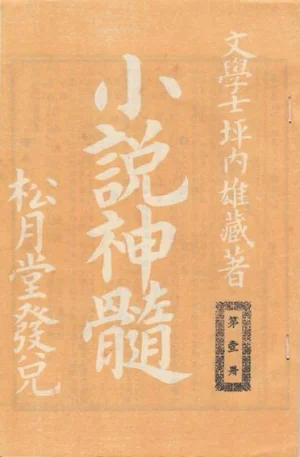 文學士坪内雄藏著
第壹册
小説神髓
松月堂發兌